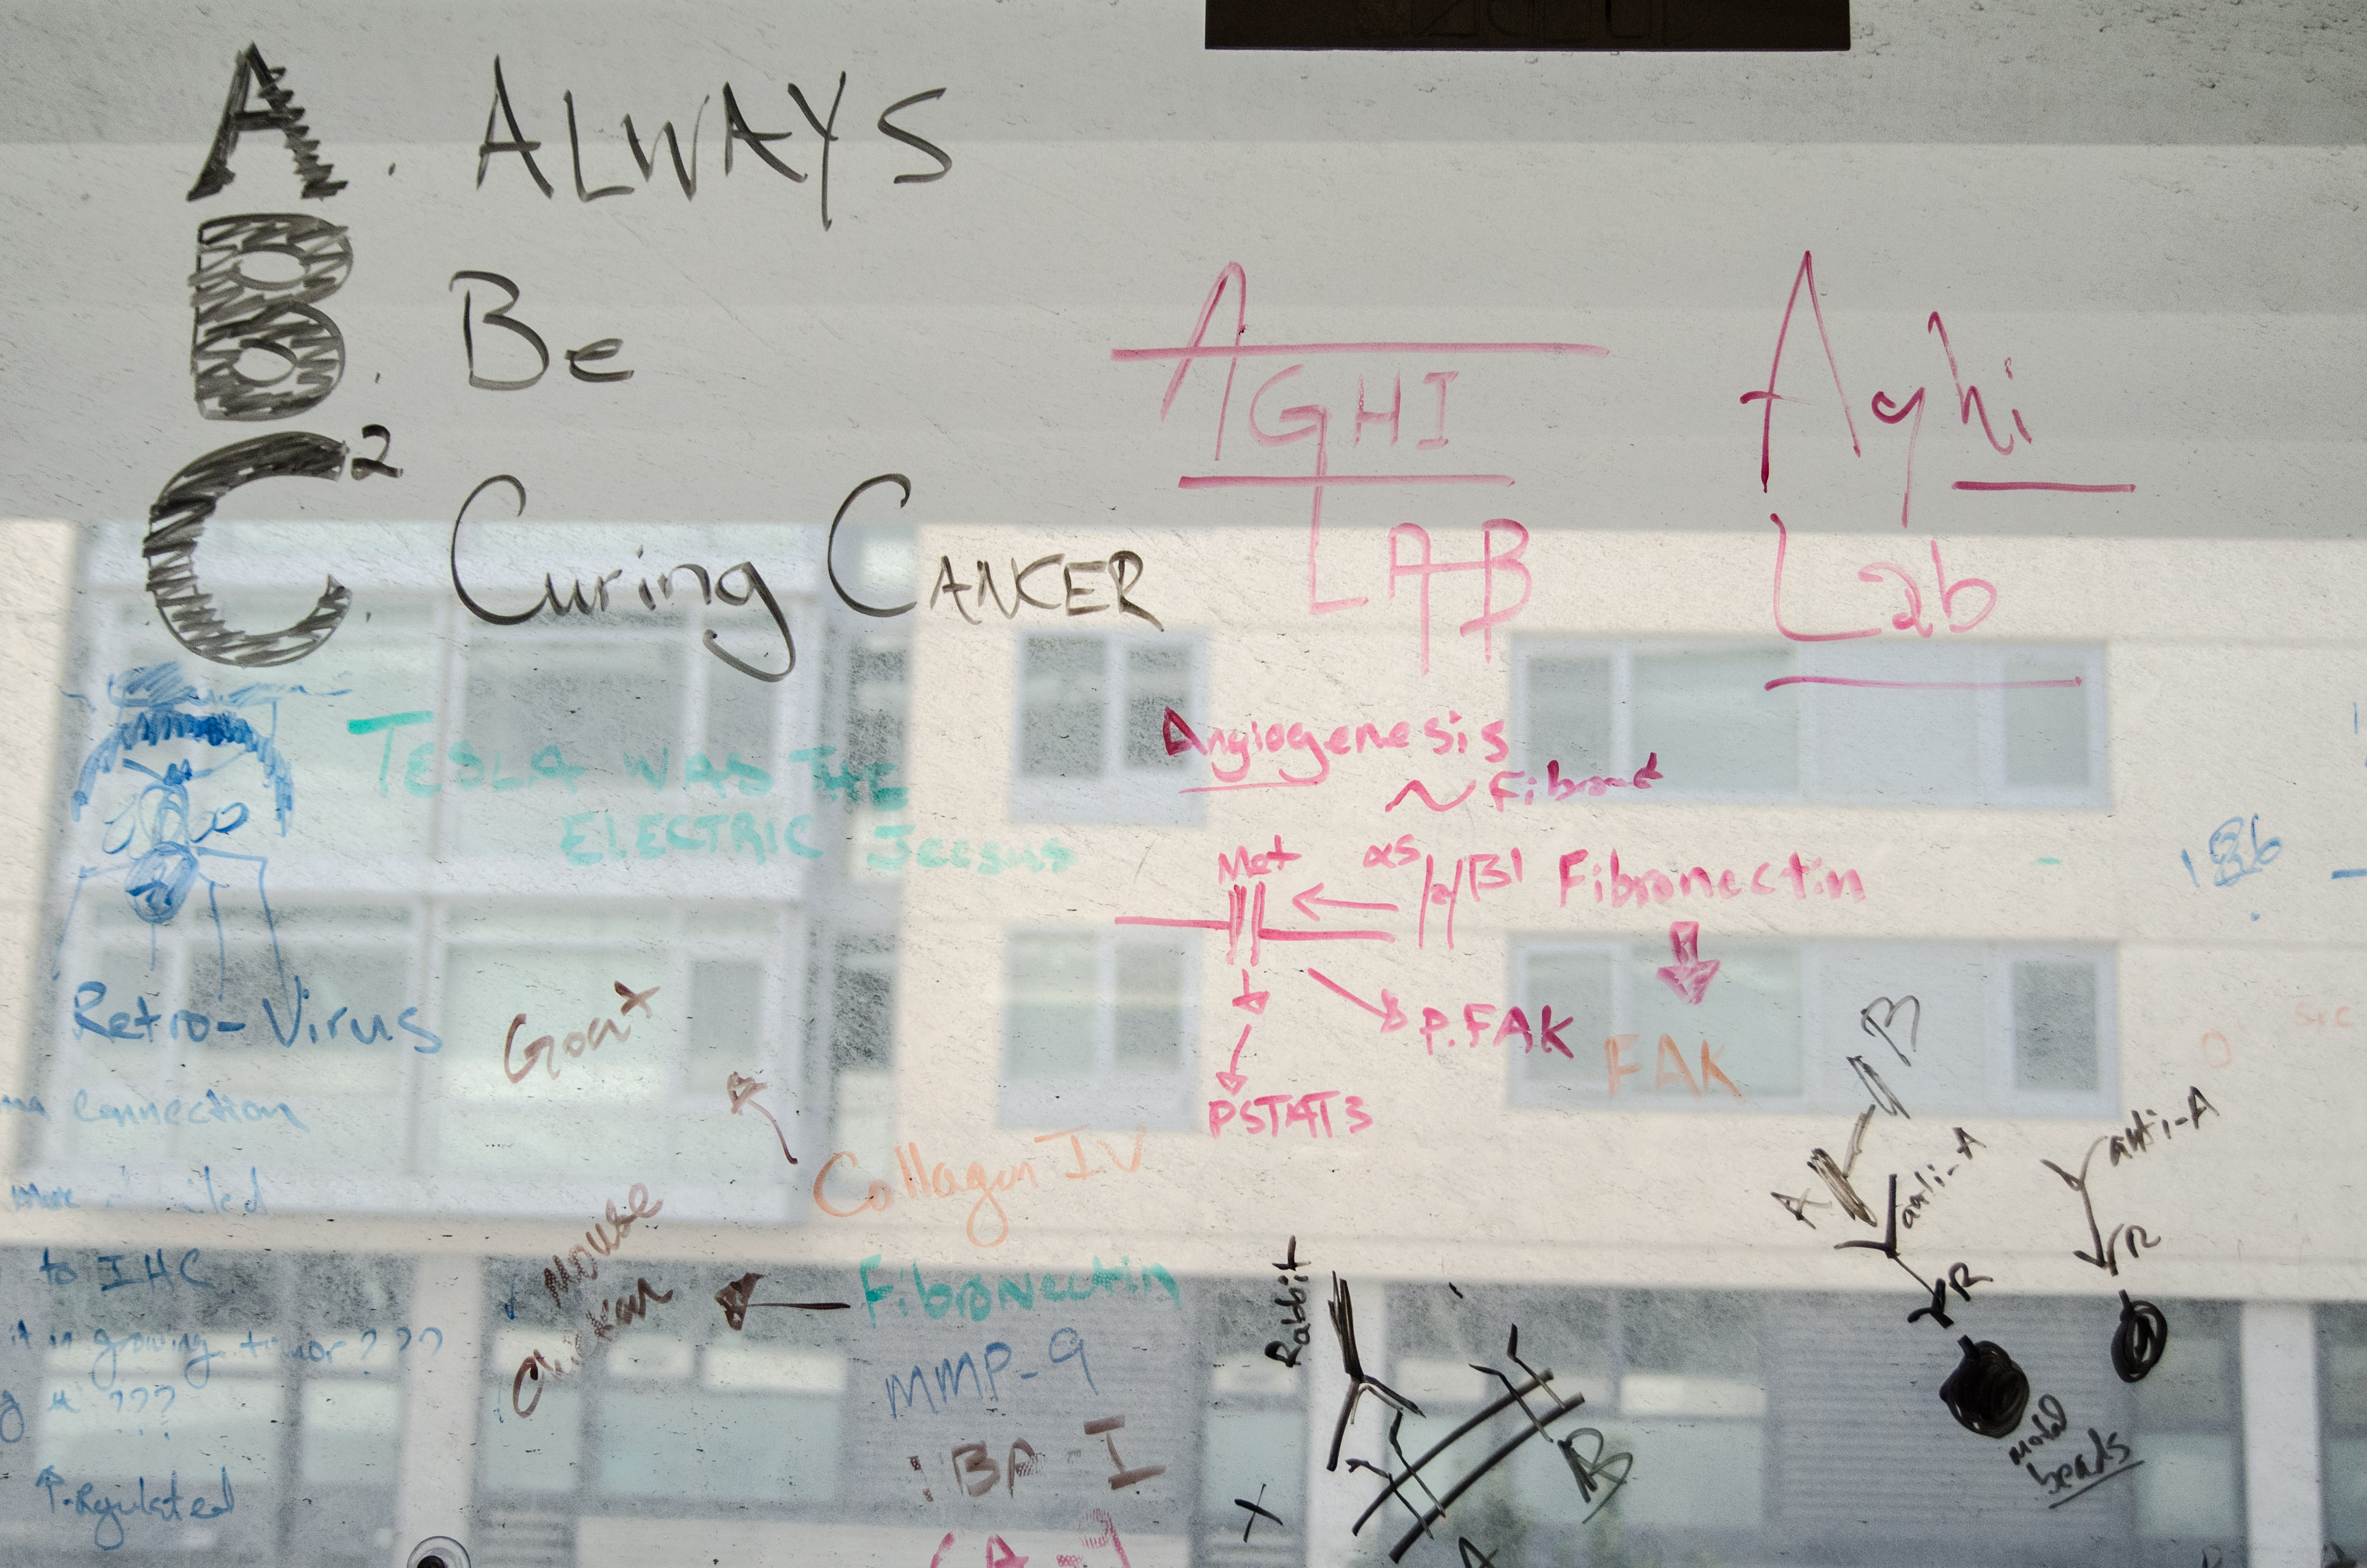 A. ALWAYS
B. Be
C². Curing CANCER
AGHI
LAB
Aghi
Lab
TESLA WAS THE
ELECTRIC Jeesus
Angiogenesis
~ Fibro
Met
α5 β1 Fibronectin
P.FAK
FAK
PSTAT3
Retro-Virus
connection
to IHC
it in growing tumor???
???
↑-regulated
Goat
Mouse
Chicken
Collagen IV
Fibronectin
MMP-9
IBA-I
Rabbit
B
A
anti-A
R
anti-A
R
beads
B
A
X